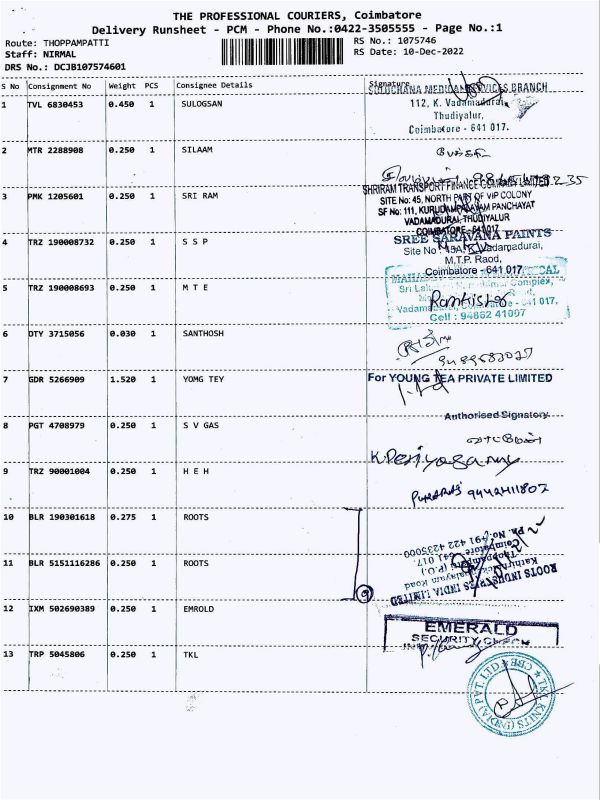 THE PROFESSIONAL COURIERS, Coimbatore
Delivery Runsheet - PCM - Phone No.:0422-3505555 - Page No.:1
Route: THOPPAMPATTI
RS No.: 1075746
Staff: NIRMAL
RS Date: 10-Dec-2022
DRS No.: DCJB107574601
S No Consignment No Weight PCS Consignee Details Signature
SULOCHANA MEDICAL SERVICES BRANCH
1 TVL 6830453 0.450 1 SULOGSAN
112, K. Vadamadurai,
Thudiyalur,
Coimbatore - 641 017.
2 MTR 2288908 0.250 1 SILAAM
SHRIRAM TRANSPORT FINANCE COMPANY LIMITED
3 PMK 1205601 0.250 1 SRI RAM
SITE No: 45, NORTH PART OF VIP COLONY
SF No: 111, KURUDAMPALAYAM PANCHAYAT
VADAMADURAI, THUDIYALUR
COIMBATORE - 641 017
SREE SARAVANA PAINTS
4 TRZ 190008732 0.250 1 S S P
Site No : 45A, K. Vadamadurai,
M.T.P. Raod,
Coimbatore - 641 017
5 TRZ 190008693 0.250 1 M T E
Complex,
641 017.
Cell : 94862 41007
6 DTY 3715056 0.030 1 SANTHOSH
7 GDR 5266909 1.520 1 YOMG TEY
For YOUNG TEA PRIVATE LIMITED
Authorised Signatory
8 PGT 4708979 0.250 1 S V GAS
K. Periyasamy
9 TRZ 90001004 0.250 1 H E H
10 BLR 190301618 0.275 1 ROOTS
Ph. No.: +91 422 4235000
Coimbatore - 641 017.
11 BLR 5151116286 0.250 1 ROOTS
ROOTS INDUSTRIES INDIA LIMITED
12 IXM 502690389 0.250 1 EMROLD
EMERALD
SECURITY CHECK
13 TRP 5045806 0.250 1 TKL